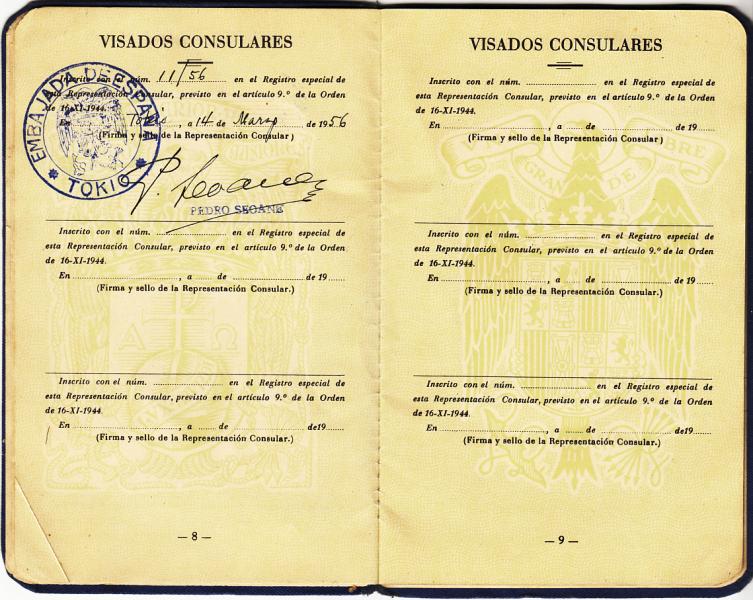 VISADOS CONSULARES
Inscrito con el núm. 11/56 en el Registro especial de
esta Representación Consular, previsto en el artículo 9.º de la Orden
de 16-XI-1944.
En Tokio, a 14 de Marzo de 1956
(Firma y sello de la Representación Consular)
EMBAJADA DE ESPAÑA
* TOKIO *
P. Seoane
PEDRO SEOANE
Inscrito con el núm. en el Registro especial de
esta Representación Consular, previsto en el artículo 9.º de la Orden
de 16-XI-1944.
En , a de de 19
(Firma y sello de la Representación Consular.)
Α Ω
Inscrito con el núm. en el Registro especial de
esta Representación Consular, previsto en el artículo 9.º de la Orden
de 16-XI-1944.
En , a de de 19
(Firma y sello de la Representación Consular.)
— 8 —
VISADOS CONSULARES
Inscrito con el núm. en el Registro especial de
esta Representación Consular, previsto en el artículo 9.º de la Orden
de 16-XI-1944.
En , a de de 19
(Firma y sello de la Representación Consular)
Inscrito con el núm. en el Registro especial de
esta Representación Consular, previsto en el artículo 9.º de la Orden
de 16-XI-1944.
En , a de de 19
(Firma y sello de la Representación Consular.)
Inscrito con el núm. en el Registro especial de
esta Representación Consular, previsto en el artículo 9.º de la Orden
de 16-XI-1944.
En , a de de 19
(Firma y sello de la Representación Consular.)
— 9 —